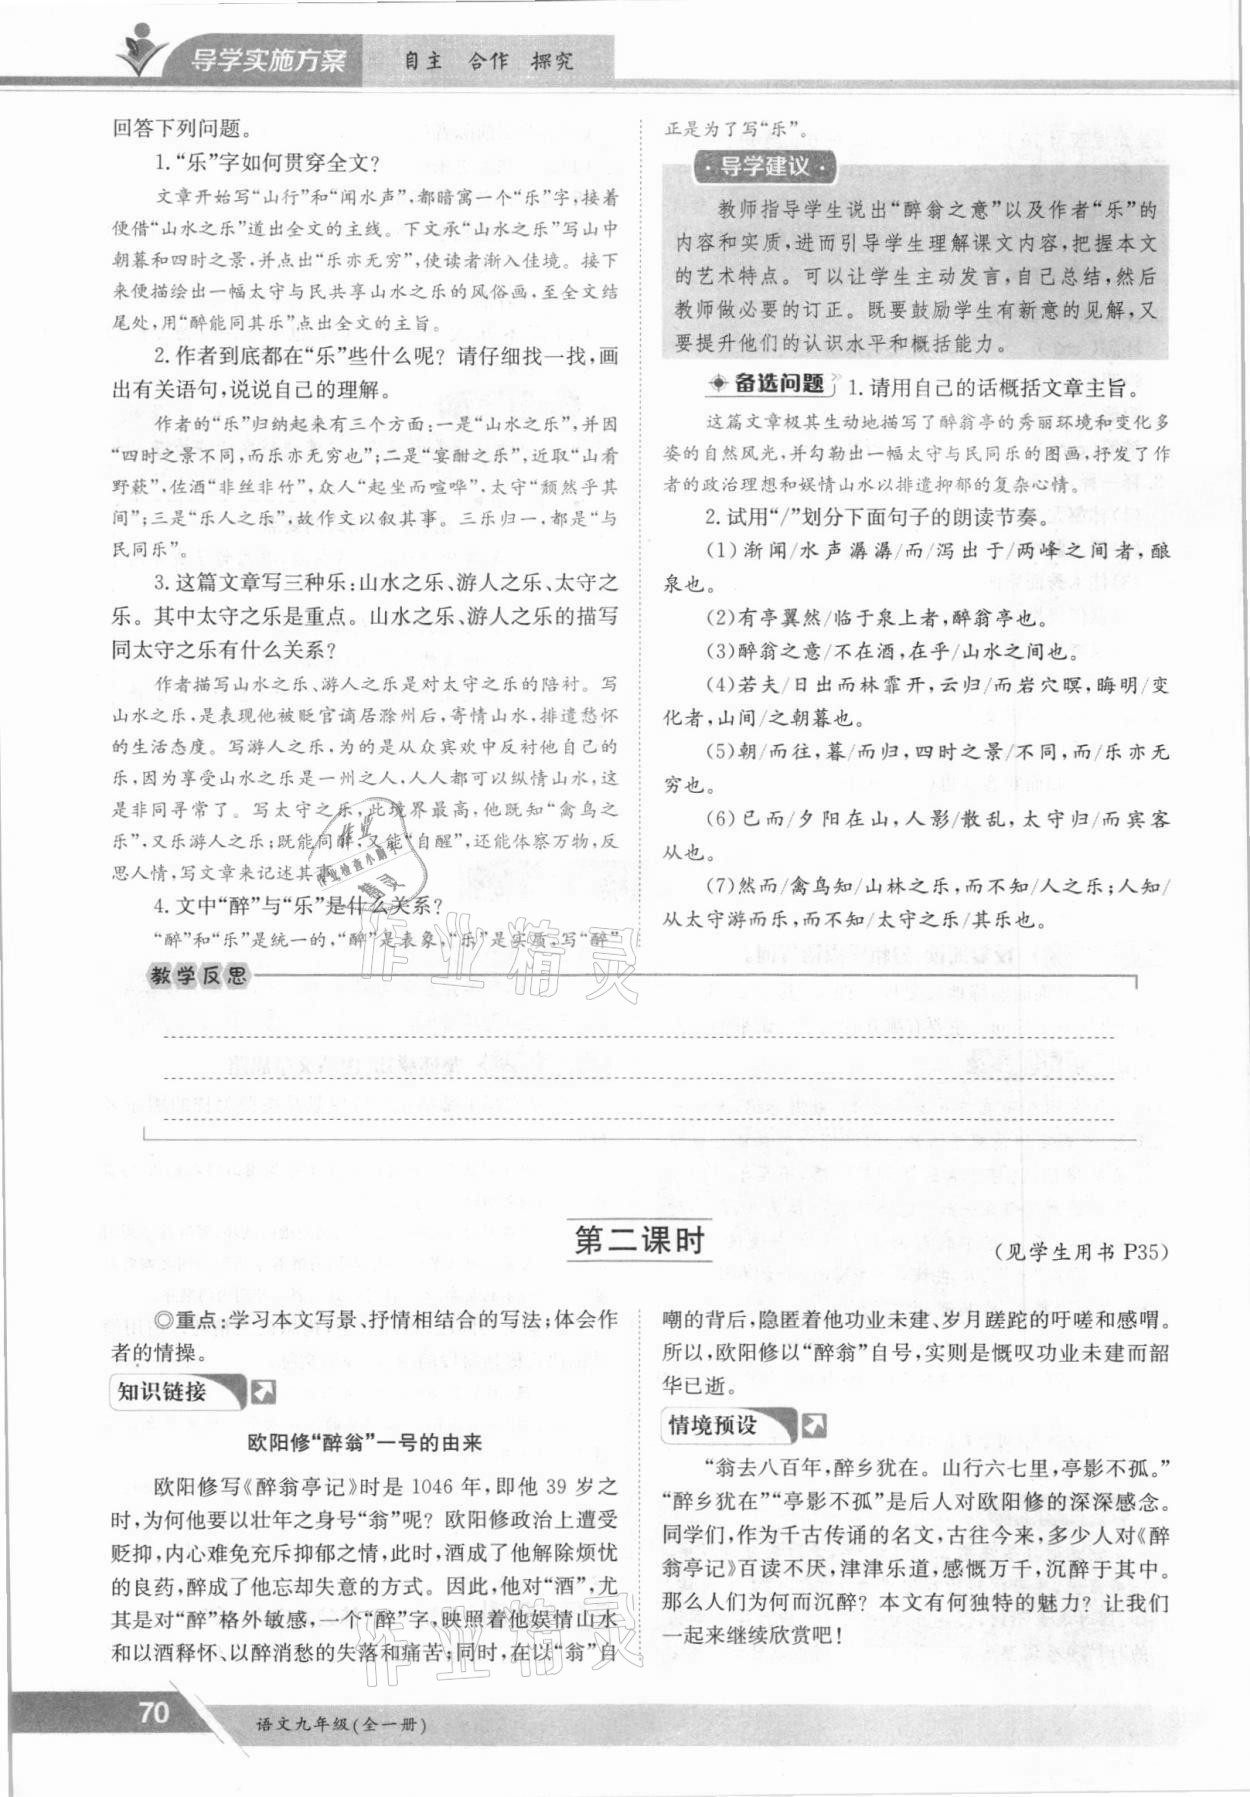 导学实施方案 自主 合作 探究
回答下列问题。
1.“乐”字如何贯穿全文?
文章开始写“山行”和“闻水声”,都暗寓一个“乐”字,接着
便借“山水之乐”道出全文的主线。下文承“山水之乐”写山中
朝暮和四时之景,并点出“乐亦无穷”,使读者渐入佳境。接下
来便描绘出一幅太守与民共享山水之乐的风俗画,至全文结
尾处,用“醉能同其乐”点出全文的主旨。
2.作者到底都在“乐”些什么呢?请仔细找一找,画
出有关语句,说说自己的理解。
作者的“乐”归纳起来有三个方面:一是“山水之乐”,并因
“四时之景不同,而乐亦无穷也”;二是“宴酣之乐”,近取“山肴
野蔌”,佐酒“非丝非竹”,众人“起坐而喧哗”,太守“颓然乎其
间”;三是“乐人之乐”,故作文以叙其事。三乐归一,都是“与
民同乐”。
3.这篇文章写三种乐:山水之乐、游人之乐、太守之
乐。其中太守之乐是重点。山水之乐、游人之乐的描写
同太守之乐有什么关系?
作者描写山水之乐、游人之乐是对太守之乐的陪衬。写
山水之乐,是表现他被贬官谪居滁州后,寄情山水,排遣愁怀
的生活态度。写游人之乐,为的是从众宾欢中反衬他自己的
乐,因为享受山水之乐是一州之人,人人都可以纵情山水,这
是非同寻常了。写太守之乐,此境界最高,他既知“禽鸟之
乐”,又乐游人之乐;既能同醉,又能“自醒”,还能体察万物,反
思人情,写文章来记述其事。
4.文中“醉”与“乐”是什么关系?
“醉”和“乐”是统一的,“醉”是表象,“乐”是实质,写“醉”
正是为了写“乐”。
·导学建议·
教师指导学生说出“醉翁之意”以及作者“乐”的
内容和实质,进而引导学生理解课文内容,把握本文
的艺术特点。可以让学生主动发言,自己总结,然后
教师做必要的订正。既要鼓励学生有新意的见解,又
要提升他们的认识水平和概括能力。
备选问题 1.请用自己的话概括文章主旨。
这篇文章极其生动地描写了醉翁亭的秀丽环境和变化多
姿的自然风光,并勾勒出一幅太守与民同乐的图画,抒发了作
者的政治理想和娱情山水以排遣抑郁的复杂心情。
2.试用“/”划分下面句子的朗读节奏。
(1)渐闻/水声潺潺/而/泻出于/两峰之间者,酿
泉也。
(2)有亭翼然/临于泉上者,醉翁亭也。
(3)醉翁之意/不在酒,在乎/山水之间也。
(4)若夫/日出而林霏开,云归/而岩穴暝,晦明/变
化者,山间/之朝暮也。
(5)朝/而往,暮/而归,四时之景/不同,而/乐亦无
穷也。
(6)已而/夕阳在山,人影/散乱,太守归/而宾客
从也。
(7)然而/禽鸟知/山林之乐,而不知/人之乐;人知/
从太守游而乐,而不知/太守之乐/其乐也。
教学反思
第二课时
(见学生用书 P35)
◎重点:学习本文写景、抒情相结合的写法;体会作
者的情操。
知识链接
欧阳修“醉翁”一号的由来
欧阳修写《醉翁亭记》时是 1046 年,即他 39 岁之
时,为何他要以壮年之身号“翁”呢?欧阳修政治上遭受
贬抑,内心难免充斥抑郁之情,此时,酒成了他解除烦忧
的良药,醉成了他忘却失意的方式。因此,他对“酒”,尤
其是对“醉”格外敏感,一个“醉”字,映照着他娱情山水
和以酒释怀、以醉消愁的失落和痛苦;同时,在以“翁”自
嘲的背后,隐匿着他功业未建、岁月蹉跎的吁嗟和感喟。
所以,欧阳修以“醉翁”自号,实则是慨叹功业未建而韶
华已逝。
情境预设
“翁去八百年,醉乡犹在。山行六七里,亭影不孤。”
“醉乡犹在”“亭影不孤”是后人对欧阳修的深深感念。
同学们,作为千古传诵的名文,古往今来,多少人对《醉
翁亭记》百读不厌,津津乐道,感慨万千,沉醉于其中。
那么人们为何而沉醉?本文有何独特的魅力?让我们
一起来继续欣赏吧!
70
语文九年级(全一册)
作业精灵
作业检查小助手
作业
精灵
作业精灵